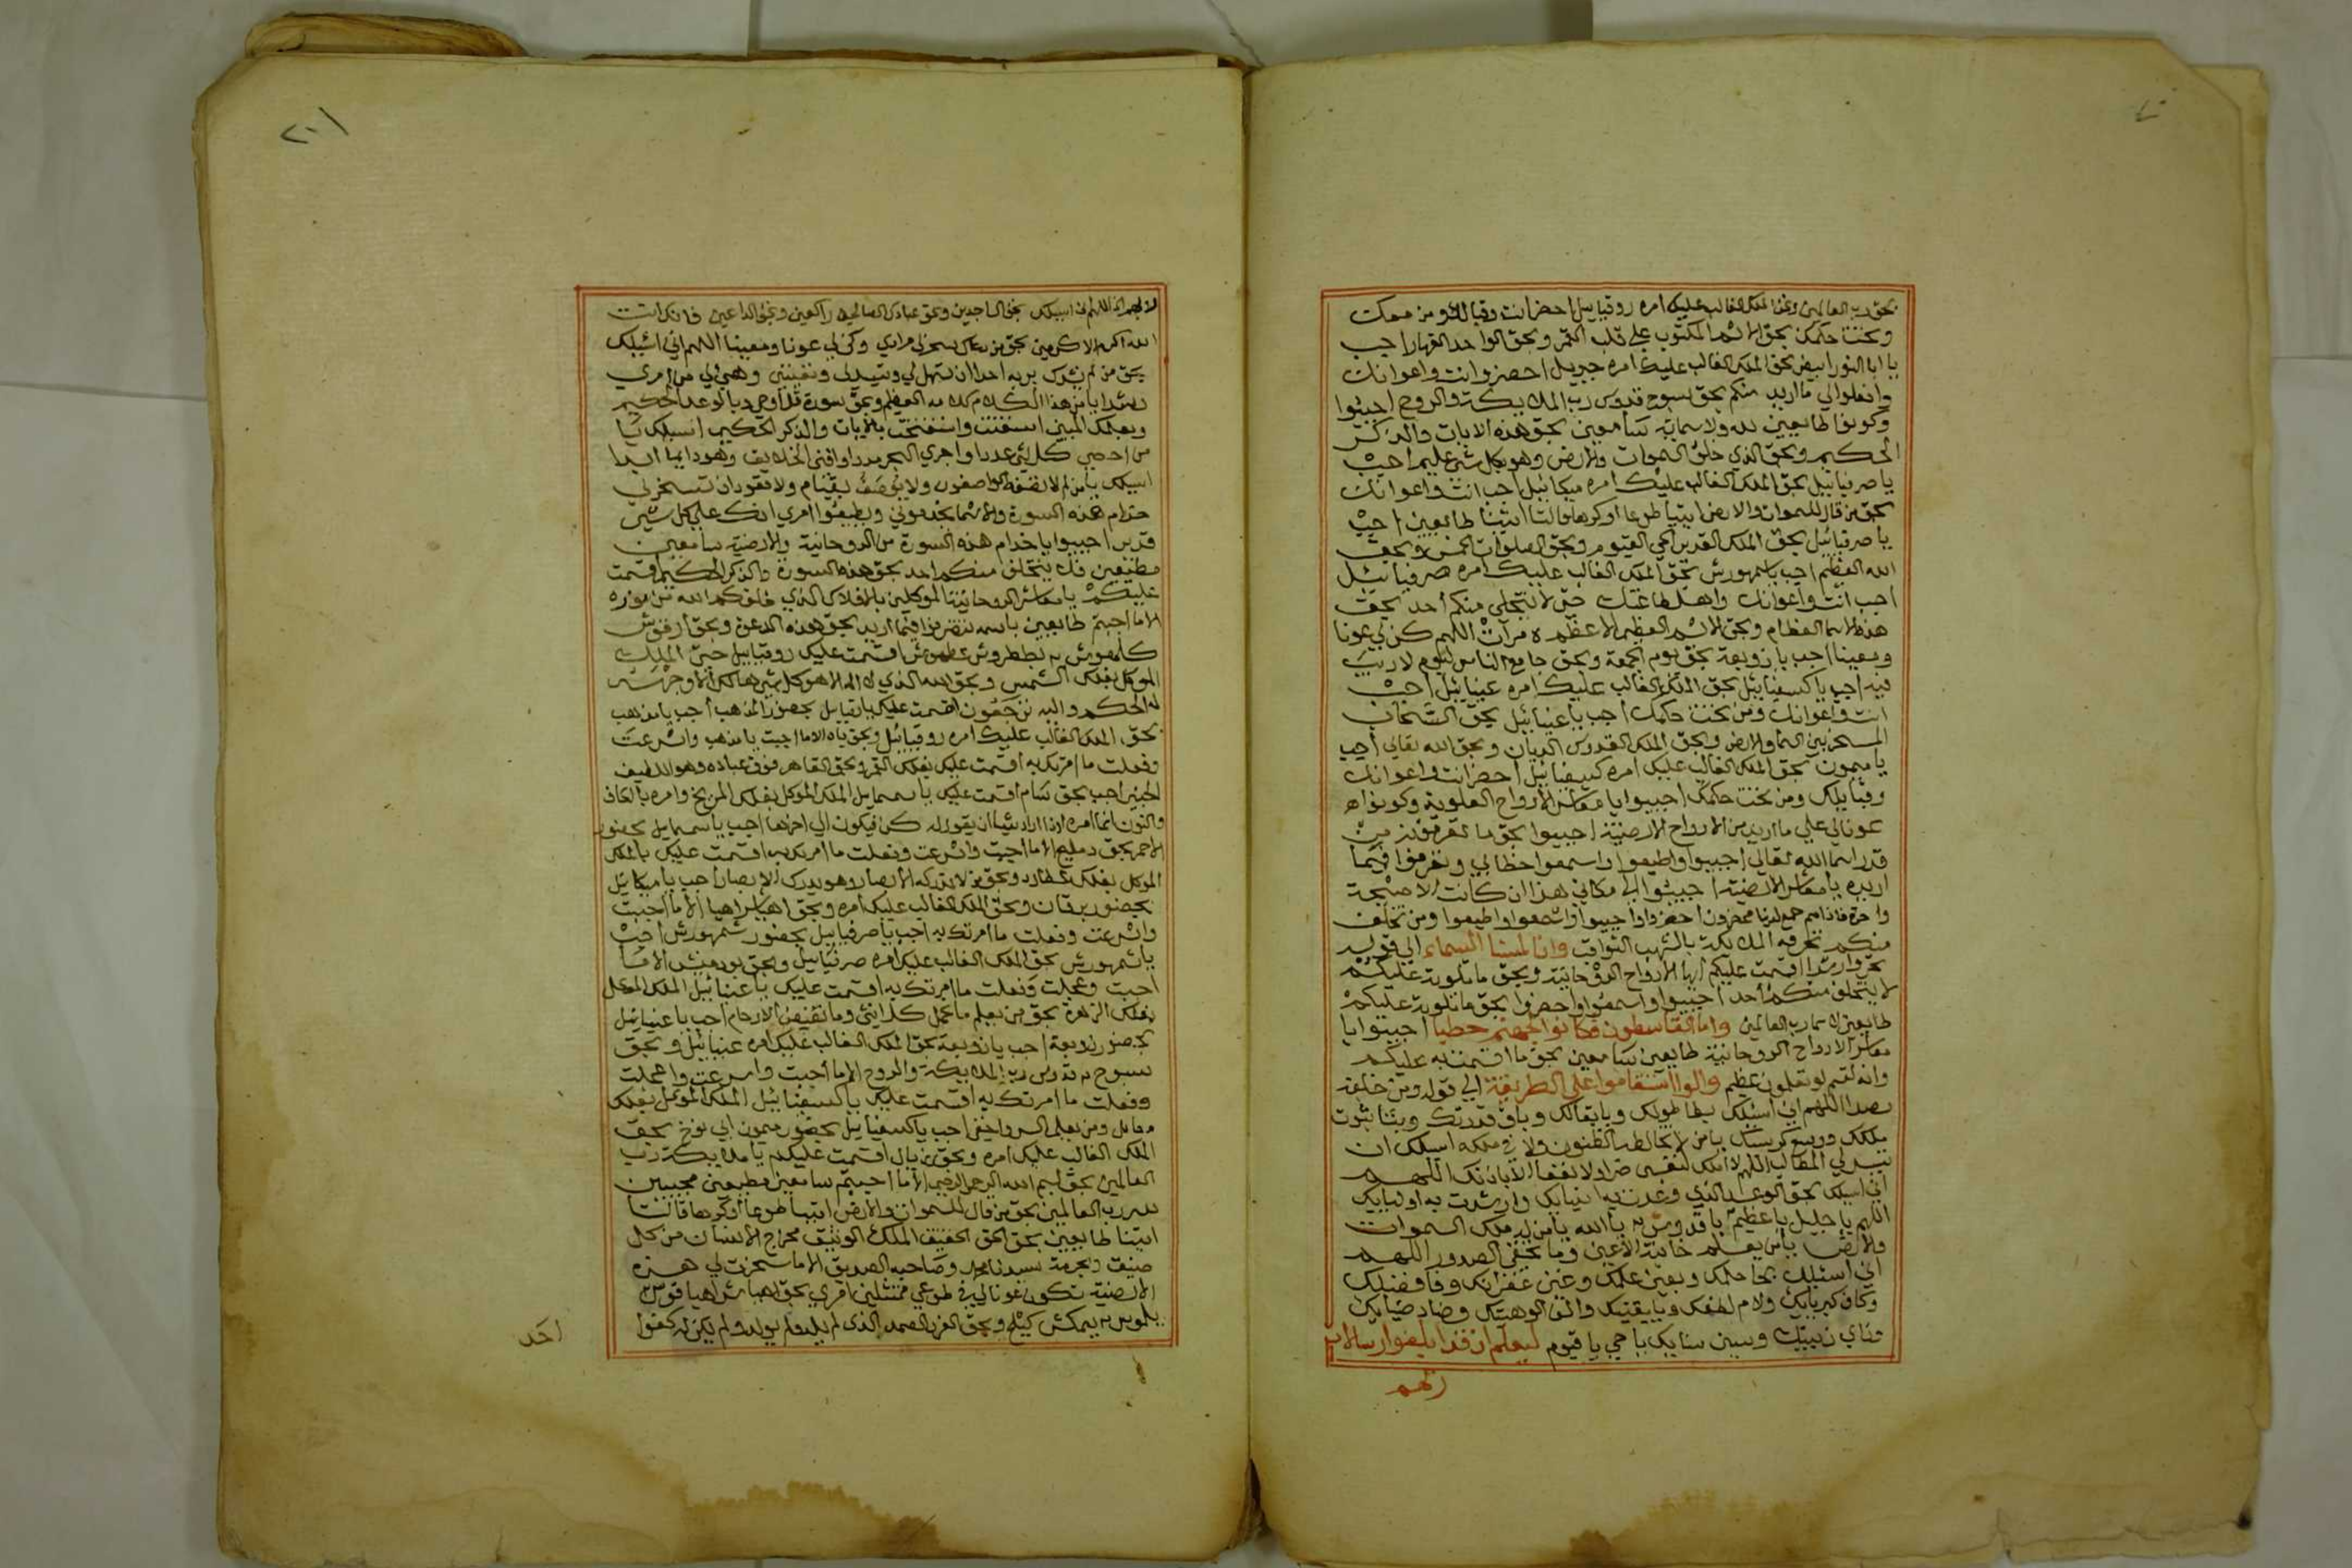 بحق رب العالمين وبحق الملك الغالب عليك امره روقيائيل احضر انت وقبائلك ومن معك
وتحت حكمك بحق الاسم المكتوب على قلب القمر وبحق الواحد القهار اجب
يا ابا النور ابيض بحق الملك الغالب عليك امره جبريل احضر انت واعوانك
وافعلوا لي ما اريد منكم بحق سبوح قدوس رب الملايكة والروح اجيبوا
وكونوا طايعين لله ولاسمايه سامعين بحق هذه الايات والذكر
الحكيم وبحق الذي خلق السموات والارض وهو بكل شي عليم اجب
يا صرفيائيل بحق الملك الغالب عليك امره ميكائيل اجب انت واعوانك
بحق من قال للسموات والارض ايتيا طوعا او كرها قالتا اتينا طايعين اجب
يا صرفيائيل بحق الملك القدير الحي القيوم وبحق الصلوات الخمس وبحق
الله العظيم اجب يا شمهورش بحق الملك الغالب عليك امره صرفيائيل
اجب انت واعوانك واهل طاعتك حتى لا يتخلى منكم أحد بحق
هذه الاسما العظام وبحق الاسم العظيم الاعظم مرآت اللهم كن لي عونا
ومعينا اجب يا زوبعة بحق يوم الجمعة وبحق جامع الناس ليوم لا ريب
فيه اجب يا كسفيائيل بحق الملك الغالب عليك امره عنيائيل اجب
انت واعوانك ومن تحت حكمك اجب يا عنيائيل بحق السحاب
المسخر بين السما والارض وبحق الملك القدوس الديان وبحق الله تعالى أجب
يا ميمون بحق الملك الغالب عليك امره كسفيائيل احضر انت واعوانك
وقبايلك ومن تحت حكمك اجيبوا يا معاشر الارواح العلوية وكونوا
عونا لي على ما اريد من الارواح الارضية اجيبوا بحق ما تعرفونه من
قدر اسما الله تعالى اجيبوا واطيعوا واسمعوا خطابي وتصرفوا فيما
اريده يا معاشر الارضية اجيبوا الى مكاني هذا ان كانت الا صيحة
واحدة فاذا هم جميع لدينا محضرون احضروا واجيبوا واسمعوا واطيعوا ومن تخلف
منكم تحرقه الملايكة بالشهب الثواقب وانا لمسنا السماء الى قوله
تحروا رشدا اقسمت عليكم ايها الارواح الروحانية وبحق ما تلوته عليكم
لا يتخلف منكم أحد اجيبوا واسمعوا واحضروا بحق ما تلوته عليكم
طايعين لاسما رب العالمين واما القاسطون فكانوا لجهنم حطبا اجيبوا يا
معاشر الارواح الروحانية طايعين سامعين بحق ما اقسمت به عليكم
وانه لقسم لو تعلمون عظيم والوا استقاموا على الطريقة الى قوله ومن خلفه
رصدا اللهم اني اسئلك بطا طولك وبا بقائك وباق قدرتك وبثا ثبوت
ملكك ووسيع كرسيك يا من لا تخالطه الظنون ولا في ملكه اسيلك ان
تيسر لي المطالب اللهم لا املك لنفسي ضرا ولا نفعا الا باذنك اللهم
اني اسيلك بحق الوعد الذي وعدت به انبيايك وارشدت به اوليايك
اللهم يا جليل يا عظيم يا قدوس يا الله يا من له ملك السموات
والارض يا من يعلم خائنة الاعين وما تخفي الصدور اللهم
اني اسئلك بحا حلمك وبعين علمك وغين غفرانك وفا فضلك
وكاف كبريايك ولام لطفك ويا يقينك والف الوهيتك وضاد ضيايك
وزاي زينتك وسين سنايك يا حي يا قيوم ليعلم ان قد ابلغوا رسالات
ربهم
٢٠١
اسيلك بحق الساجدين وبحق عبادك الصالحين راكعين وبحق الداعين فانك انت
الله اكرم الاكرمين بحق من سخر لي مرادي وكن لي عونا ومعينا اللهم اني اسئلك
بحق من لم يشرك بربه احدا ان تسهل لي وتيسر لي وتغيثني وهيئ لي من امري
رشدا يا من هذا الكلام كلامه العظيم وبحق سورة قل اوحي وبالوعد الحكيم
وبعلمك المبين استغثت واستفتحت بالايات والذكر الحكيم اسئلك يا
من احصى كل شي عددا واجري البحر مددا وافنى الخلايق وهو دايما ابدا
اسيلك يا من لا تصفه الواصفون ولا يوصف بقيام ولا قعود ان تسخر لي
خدام هذه السورة والاسما يخدموني ويطيعوا امري انك على كل شي
قدير اجيبوا يا خدام هذه السورة من الروحانية والارضية سامعين
مطيعين فلا يتخلف منكم احد بحق هذه السورة والذكر الحكيم اقسمت
عليكم يا معاشر الروحانية الموكلين بالافلاك الذي خلقكم الله من نوره
الا ما اجبتم طايعين باسمه تتصرفوا فيما اريد بحق هذه الدعوة وبحق ارقوش
كلهوش بططروش عظهوش اقسمت عليك روقيائيل حتى الملك
الموكل بفلك الشمس وبحق الله الذي لا اله الا هو كل شي هالك الا وجهه
له الحكم واليه ترجعون اقسمت عليك يا رقيائيل بحضور المذهب أجب يا مذهب
بحق الملك الغالب عليك امره روقيائيل وبحق ياه الا ما اجبت يا مذهب واسرعت
وفعلت ما امرتك به اقسمت عليك بفلك القمر وبحق القاهر فوق عباده وهو اللطيف
الخبير اجب بحق سام اقسمت عليك يا سمسمايل الملك الموكل بفلك المريخ وامره بالكاف
والنون انما امره اذا اراد شيئا ان يقول له كن فيكون الى اخرها اجب يا سمسمايل بحضور
الاحمر بحق دمليخ الا ما أجبت واسرعت وفعلت ما امرتك به اقسمت عليك بالملك
الموكل بفلك عطارد وبحق من لا تدركه الابصار وهو يدرك الابصار أجب يا ميكائيل
بحضور برقان وبحق الملك الغالب عليك امره وبحق اهيا شراهيا الا ما اجبت
واسرعت وفعلت ما امرتك به اجب يا صرفيائيل بحضور شمهورش اجب
يا شمهورش بحق الملك الغالب عليك امره صرفيائيل وبحق الا ما
اجبت وعجلت وفعلت ما امرتك به اقسمت عليك يا عنيائيل الملك الموكل
بفلك الزهرة بحق من يعلم ما تحمل كل انثى وما تغيض الارحام أجب يا عنيائيل
بحضور زوبعة اجب يا زوبعة بحق الملك الغالب عليك امره عنيائيل وبحق
سبوح قدوس رب الملايكة والروح الا ما أجبت واسرعت واعجلت
وفعلت ما امرتك به اقسمت عليك يا كسفيائيل الملك الموكل بفلك
مقاتل ومن يعلم السر واخفى اجب يا كسفيائيل بحضور ميمون ابي نوخ بحق
الملك الغالب عليك امره وبحق اقسمت عليكم يا ملايكة رب
العالمين بحق بسم الله الرحمن الرحيم الا ما اجبتم سامعين مطيعين مجيبين
لله رب العالمين بحق من قال للسموات والارض ايتيا طوعا او كرها قالتا
اتينا طايعين بحق الحق الحقيق الملك الوثيق مخرج الانسان من كل
ضيق وبحرمة سيدنا محمد وصاحبه الصديق الا ما سخرت لي هذه
الارضية تكون عونا لي في طوعي ممتثلين امري بحق اهيا شراهيا قوش
وبحق الفرد الصمد الذي لم يلد ولم يولد ولم يكن له كفوا
احد